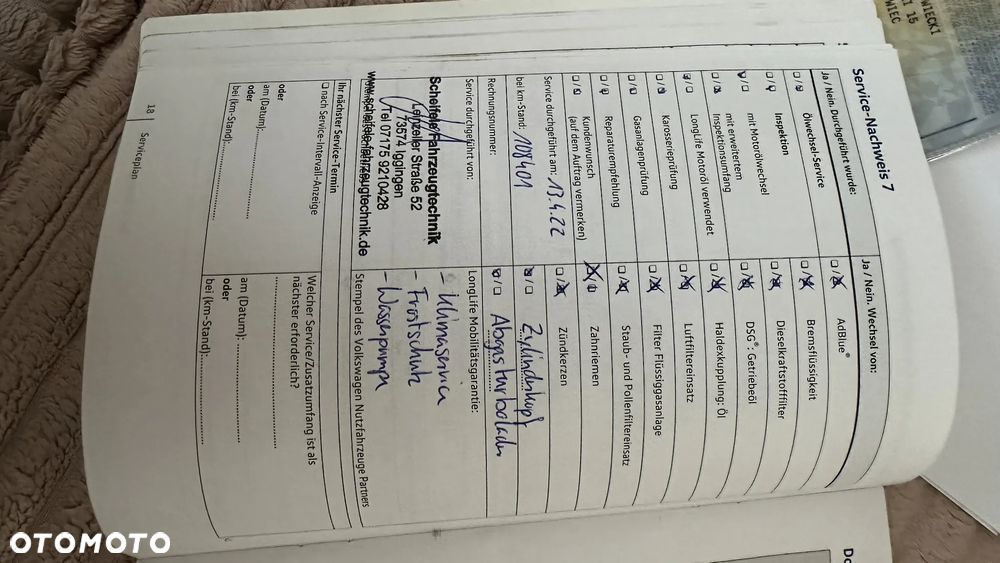 Service-Nachweis 7
Ja / Nein. Durchgeführt wurde:
□/☒ Ölwechsel-Service
Inspektion
☒/□ mit Motorölwechsel
mit erweitertem
□/☒ Inspektionsumfang
LongLife Motoröl verwendet
□/☒ Karosserieprüfung
Gasanlagenprüfung
Reparaturempfehlung
Kundenwunsch
(auf dem Auftrag vermerken)
Service durchgeführt am: 13.4.22
bei km-Stand: 108401
Rechnungsnummer:
Service durchgeführt von:
Scheifele Fahrzeugtechnik
Leinzeller Straße 52
73574 Iggingen
Tel 07175 9210428
www.scheifele-fahrzeugtechnik.de
Ihr nächster Service-Termin
□ nach Service-Intervall-Anzeige
oder
am (Datum):
oder
bei (km-Stand):
Ja / Nein. Wechsel von:
□/☒ AdBlue®
□/☒ Bremsflüssigkeit
□/☒ Dieselkraftstofffilter
□/☒ DSG®: Getriebeöl
□/☒ Haldexkupplung: Öl
□/☒ Luftfiltereinsatz
□/☒ Filter Flüssiggasanlage
□/☒ Staub- und Pollenfiltereinsatz
☒/□ Zahnriemen
□/☒ Zündkerzen
☒/□ Zylinderkopf
☒/□ Abgasturbolader
LongLife Mobilitätsgarantie:
- Klimaservice
- Frostschutz
- Wasserpumpe
Stempel des Volkswagen Nutzfahrzeuge Partners
Welcher Service/Zusatzumfang ist als
nächster erforderlich?
am (Datum):
oder
bei (km-Stand):
18 | Serviceplan
WIECKI
I 15
WIEC
Do
OTOMOTO